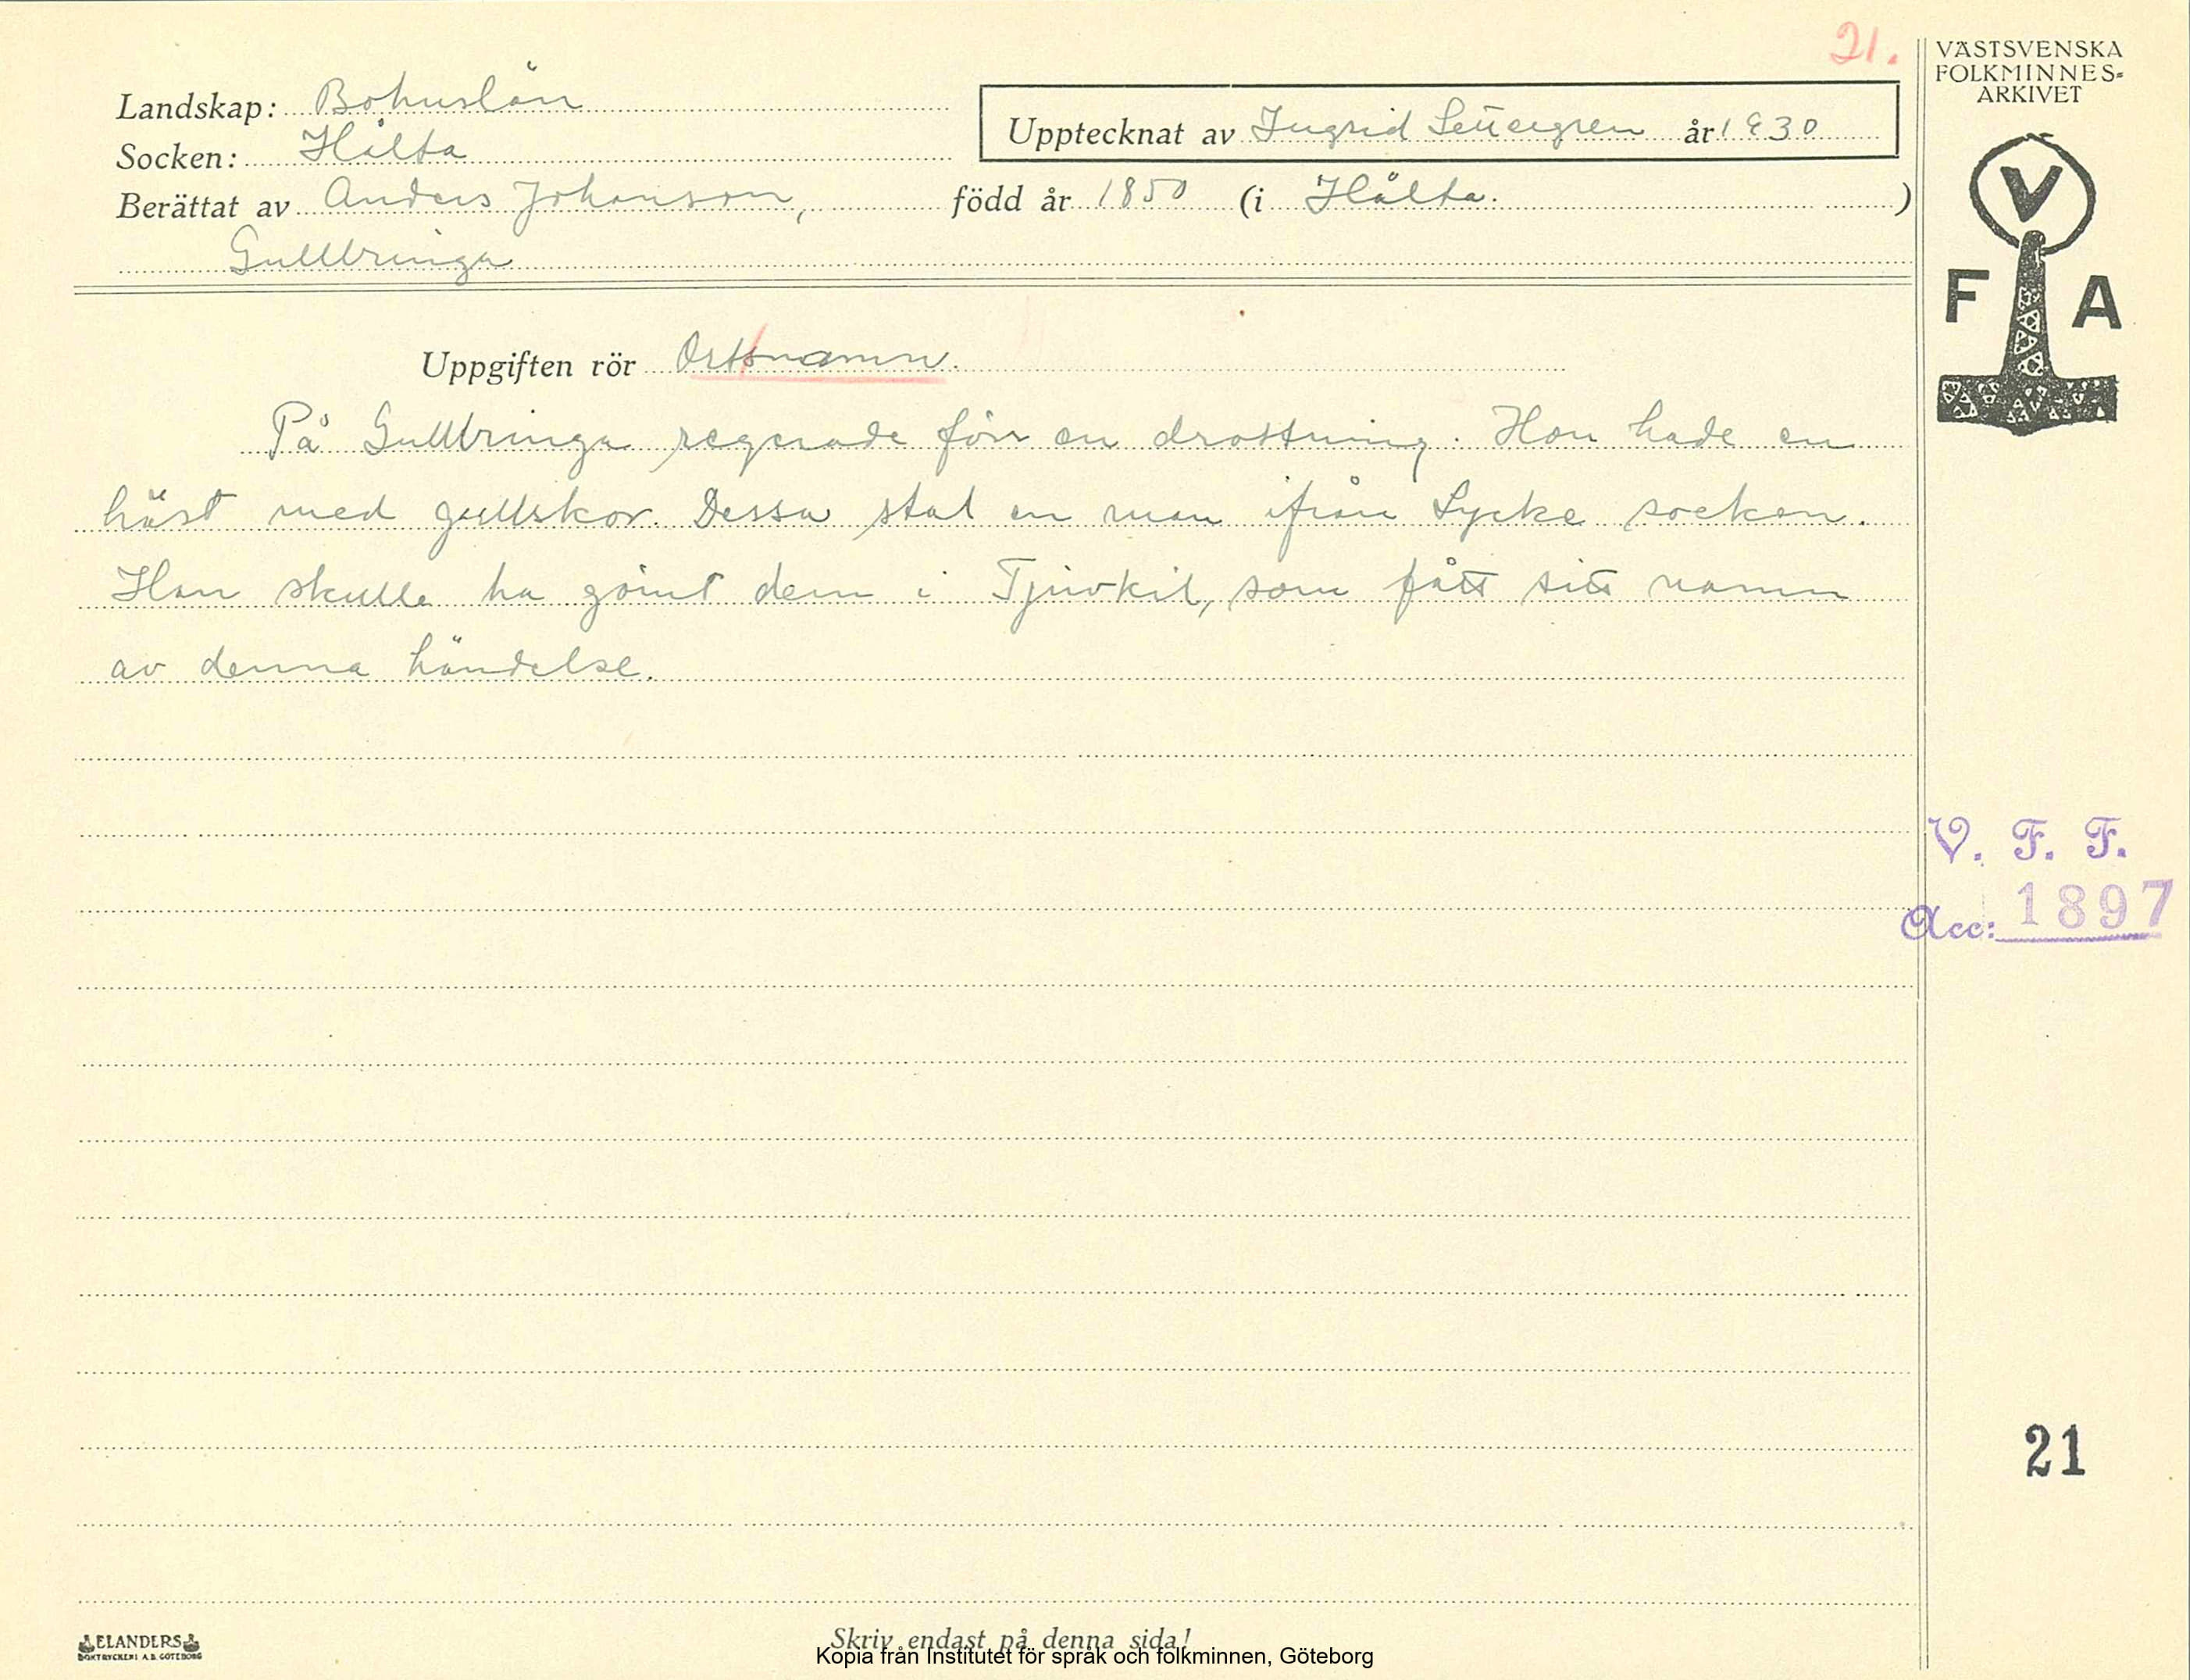 21.
VÄSTSVENSKA
FOLKMINNES-
ARKIVET
Landskap: Bohuslän
Upptecknat av Ingrid Settergren år 1930
Socken: Hålta
Berättat av Anders Johanson, född år 1850 (i Hålta. )
Gullbringa
V
F A
Uppgiften rör Ortsnamn.
På Gullbringa regerade förr en drottning. Hon hade en
häst med gullskor. Dessa stal en man ifrån Lycke socken.
Han skulle ha gömt dem i Tjuvkil, som fått sitt namn
av denna händelse.
V. F. F.
Acc: 1897
21
ELANDERS
BOKTRYCKERI A.B. GÖTEBORG
Skriv endast på denna sida!
Kopia från Institutet för språk och folkminnen, Göteborg